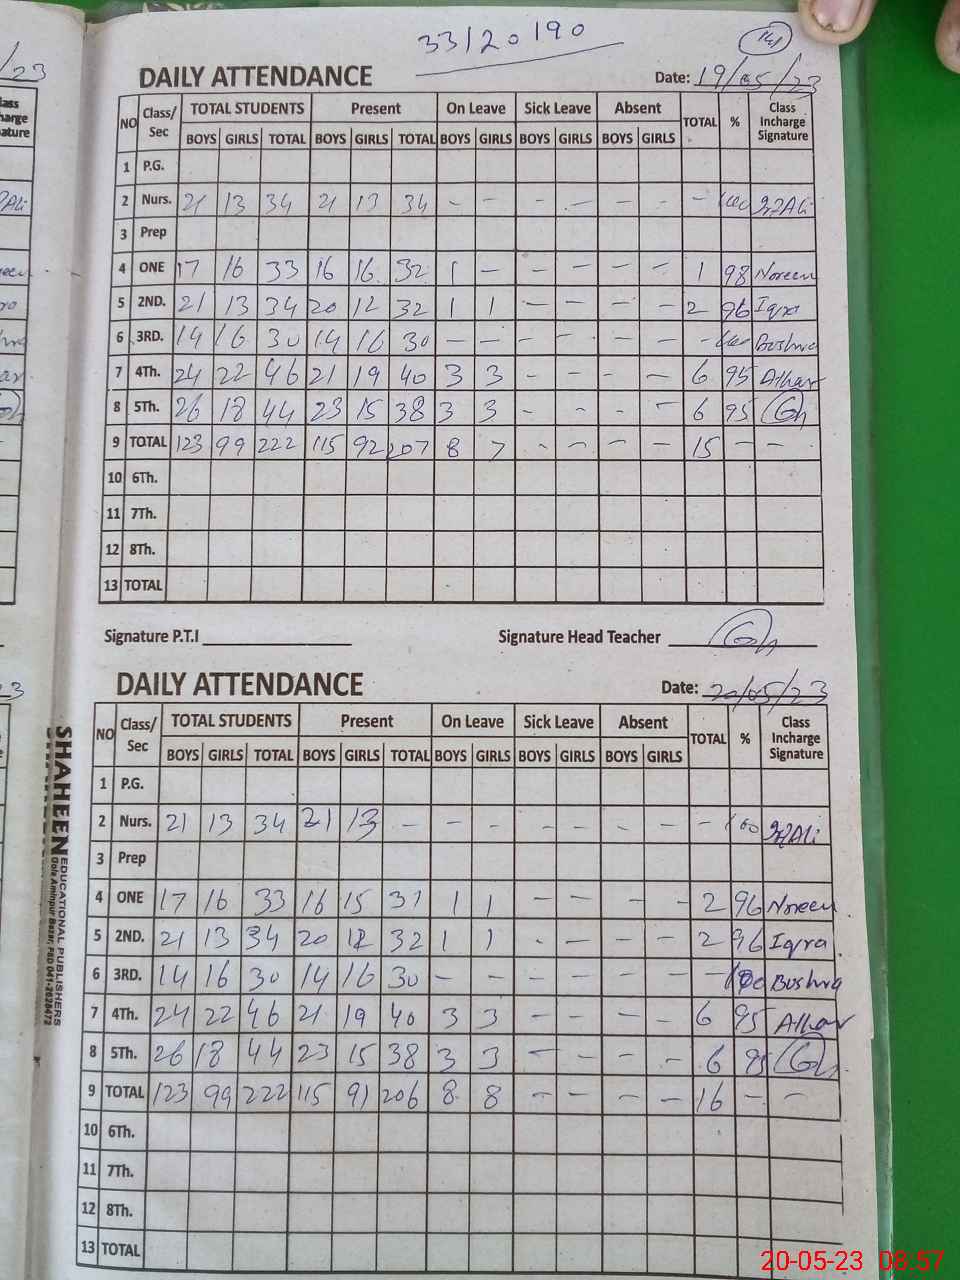 33120190
141
DAILY ATTENDANCE Date: 19/05/23
NO Class/Sec TOTAL STUDENTS Present On Leave Sick Leave Absent TOTAL % Class Incharge Signature
BOYS GIRLS TOTAL BOYS GIRLS TOTAL BOYS GIRLS BOYS GIRLS BOYS GIRLS
1 P.G.
2 Nurs. 21 13 34 21 13 34 - - - - - - - 100 Ali
3 Prep
4 ONE 17 16 33 16 16 32 1 - - - - - 1 98 Noreen
5 2ND. 21 13 34 20 12 32 1 1 - - - - 2 96 Iqra
6 3RD. 14 16 30 14 16 30 - - - - - - - 100 Bushra
7 4Th. 24 22 46 21 19 40 3 3 - - - - 6 95 Athar
8 5Th. 26 18 44 23 15 38 3 3 - - - - 6 95
9 TOTAL 123 99 222 115 92 207 8 7 - - - - 15 - -
10 6Th.
11 7Th.
12 8Th.
13 TOTAL
Signature P.T.I Signature Head Teacher
DAILY ATTENDANCE Date: 20/05/23
NO Class/Sec TOTAL STUDENTS Present On Leave Sick Leave Absent TOTAL % Class Incharge Signature
BOYS GIRLS TOTAL BOYS GIRLS TOTAL BOYS GIRLS BOYS GIRLS BOYS GIRLS
1 P.G.
2 Nurs. 21 13 34 21 13 - - - - - - - - 100 Ali
3 Prep
4 ONE 17 16 33 16 15 31 1 1 - - - - 2 96 Noreen
5 2ND. 21 13 34 20 12 32 1 1 - - - - 2 96 Iqra
6 3RD. 14 16 30 14 16 30 - - - - - - - 100 Bushra
7 4Th. 24 22 46 21 19 40 3 3 - - - - 6 95 Athar
8 5Th. 26 18 44 23 15 38 3 3 - - - - 6 95
9 TOTAL 123 99 222 115 91 206 8 8 - - - - 16 - -
10 6Th.
11 7Th.
12 8Th.
13 TOTAL
SHAHEEN EDUCATIONAL PUBLISHERS
Gole Aminpur Bazar, FSD 041-2628472
20-05-23 08:57